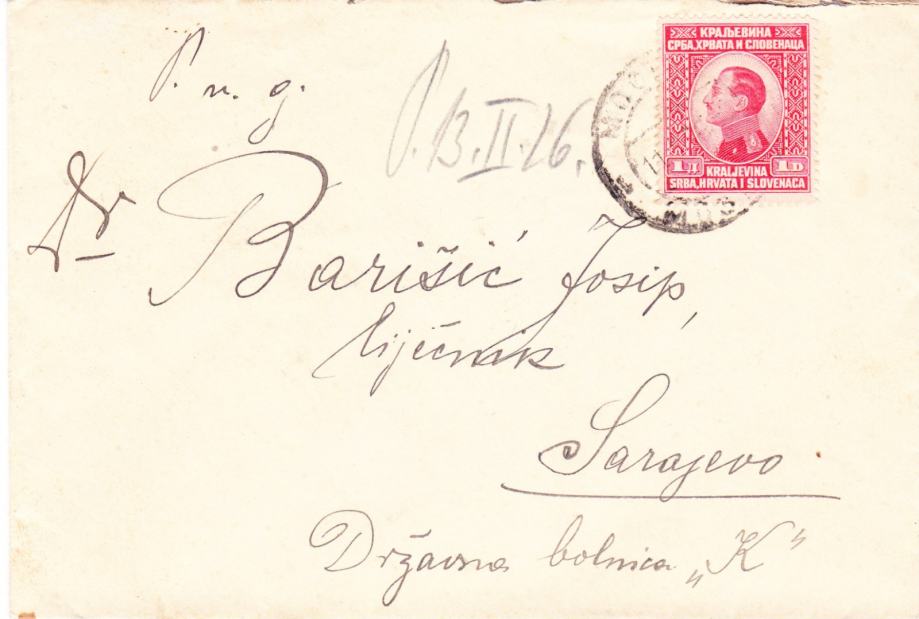 P. n. g.
P. 13.II.26.
Dr Barišić Josip,
liječnik
Sarajevo
Državna bolnica „K"
КРАЉЕВИНА
СРБА, ХРВАТА И СЛОВЕНАЦА
1 Д
1 D
KRALJEVINA
SRBA, HRVATA I SLOVENACA